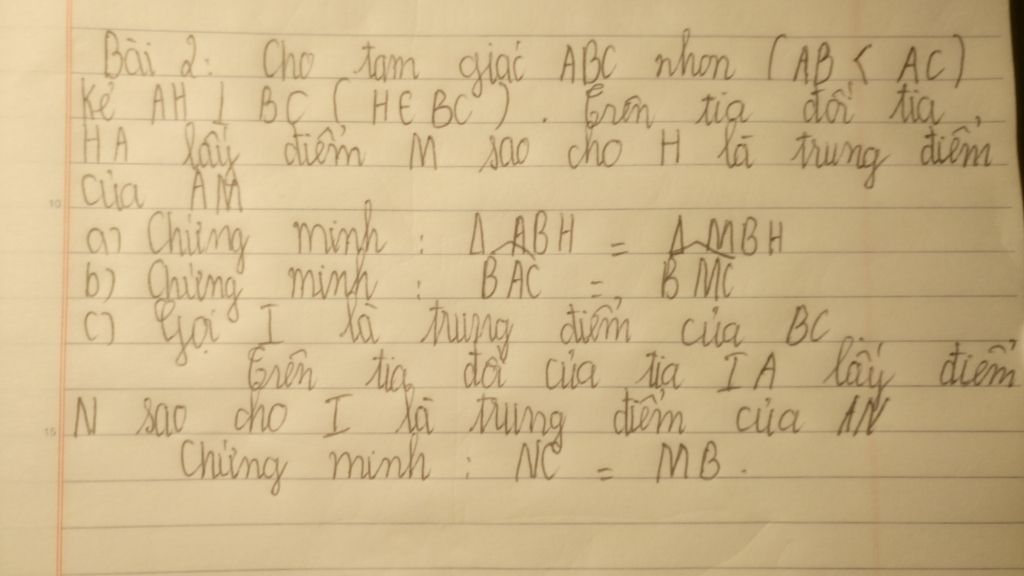 Bài 2: Cho tam giác ABC nhon (AB < AC)
Kẻ AH ⊥ BC (H∈BC). Trên tia đối tia
HA lấy điểm M sao cho H là trung điểm
10 của AM
a) Chứng minh : Δ ABH = Δ MBH
b) Chứng minh : \widehat{BAC} = \widehat{BMC}
c) Gọi I là trung điểm của BC
Trên tia đối của tia IA lấy điểm
15 N sao cho I là trung điểm của AN
Chứng minh : NC = MB.